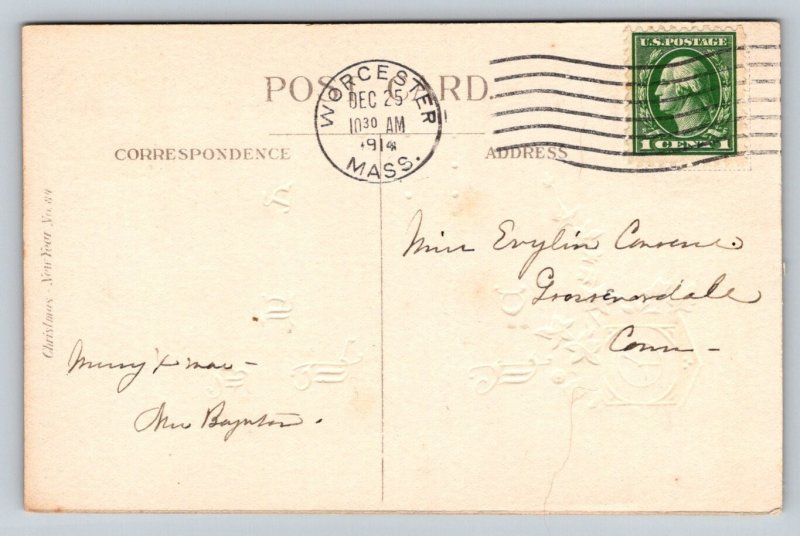 POST CARD.
WORCESTER
DEC 25
10 30 AM
1914
MASS.
U.S. POSTAGE
1 CENT 1
CORRESPONDENCE
ADDRESS
Christmas - New Year No. 
Miss Evylin Converse.
Grosvenordale
Conn -
Merry X-mas -
Mrs Boynton.